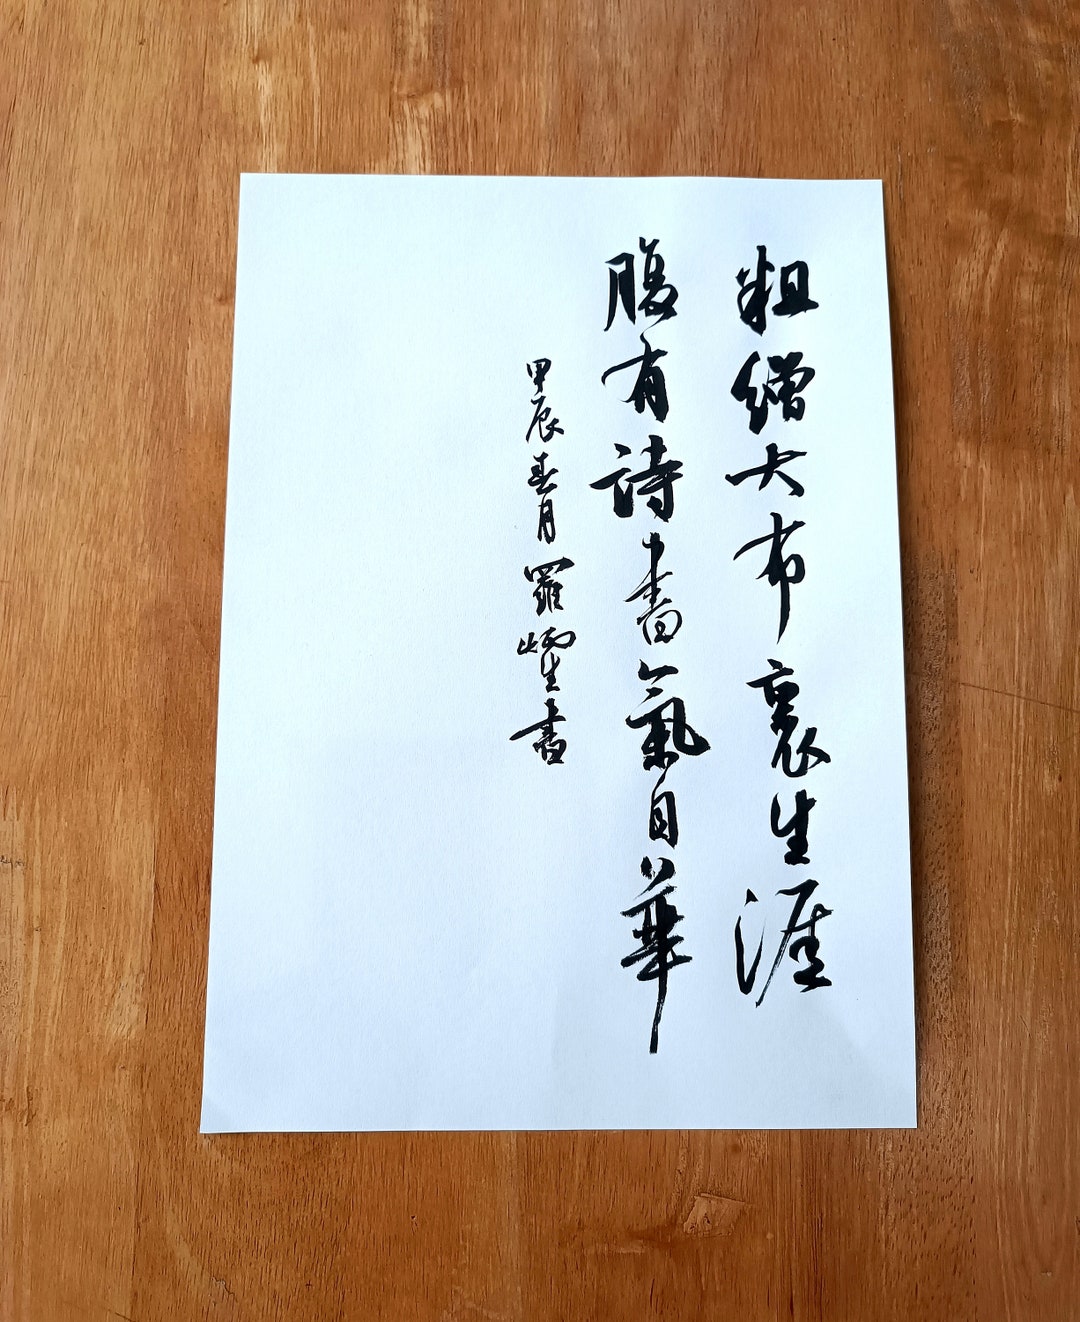 粗繒大布裹生涯
腹有詩書氣自華
甲辰春月羅生書